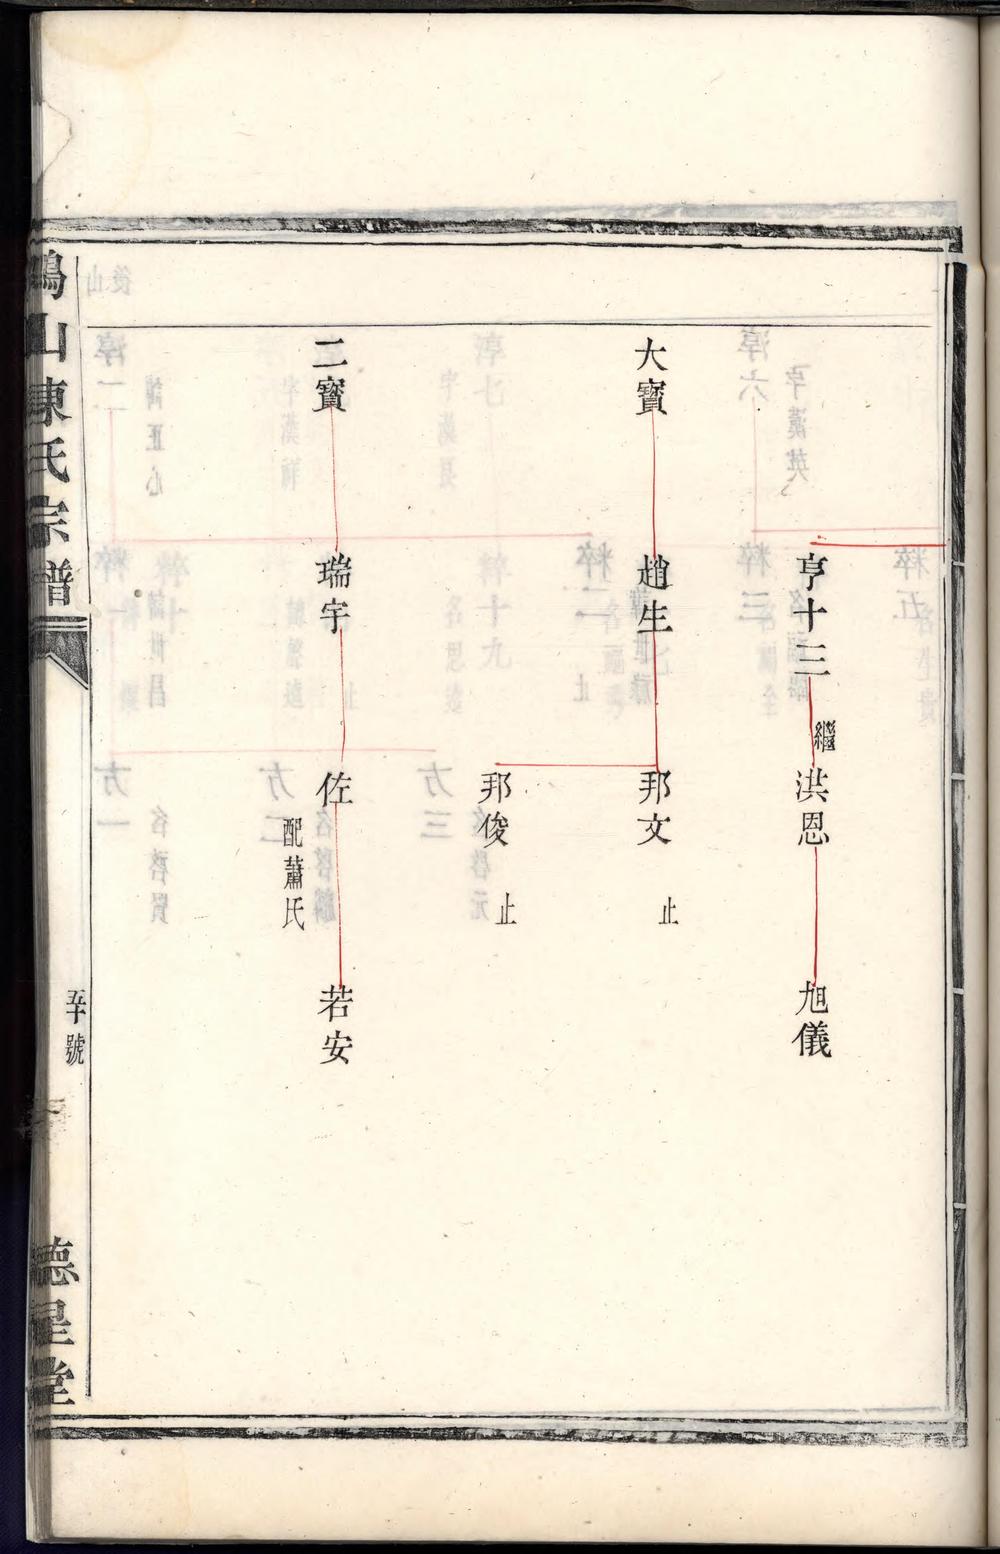 亨十三
繼
洪恩
旭儀
大寶
趙生
邦文
止
邦俊
止
二寶
瑞宇
佐
配蕭氏
若安
山陳氏宗譜
號
德星堂